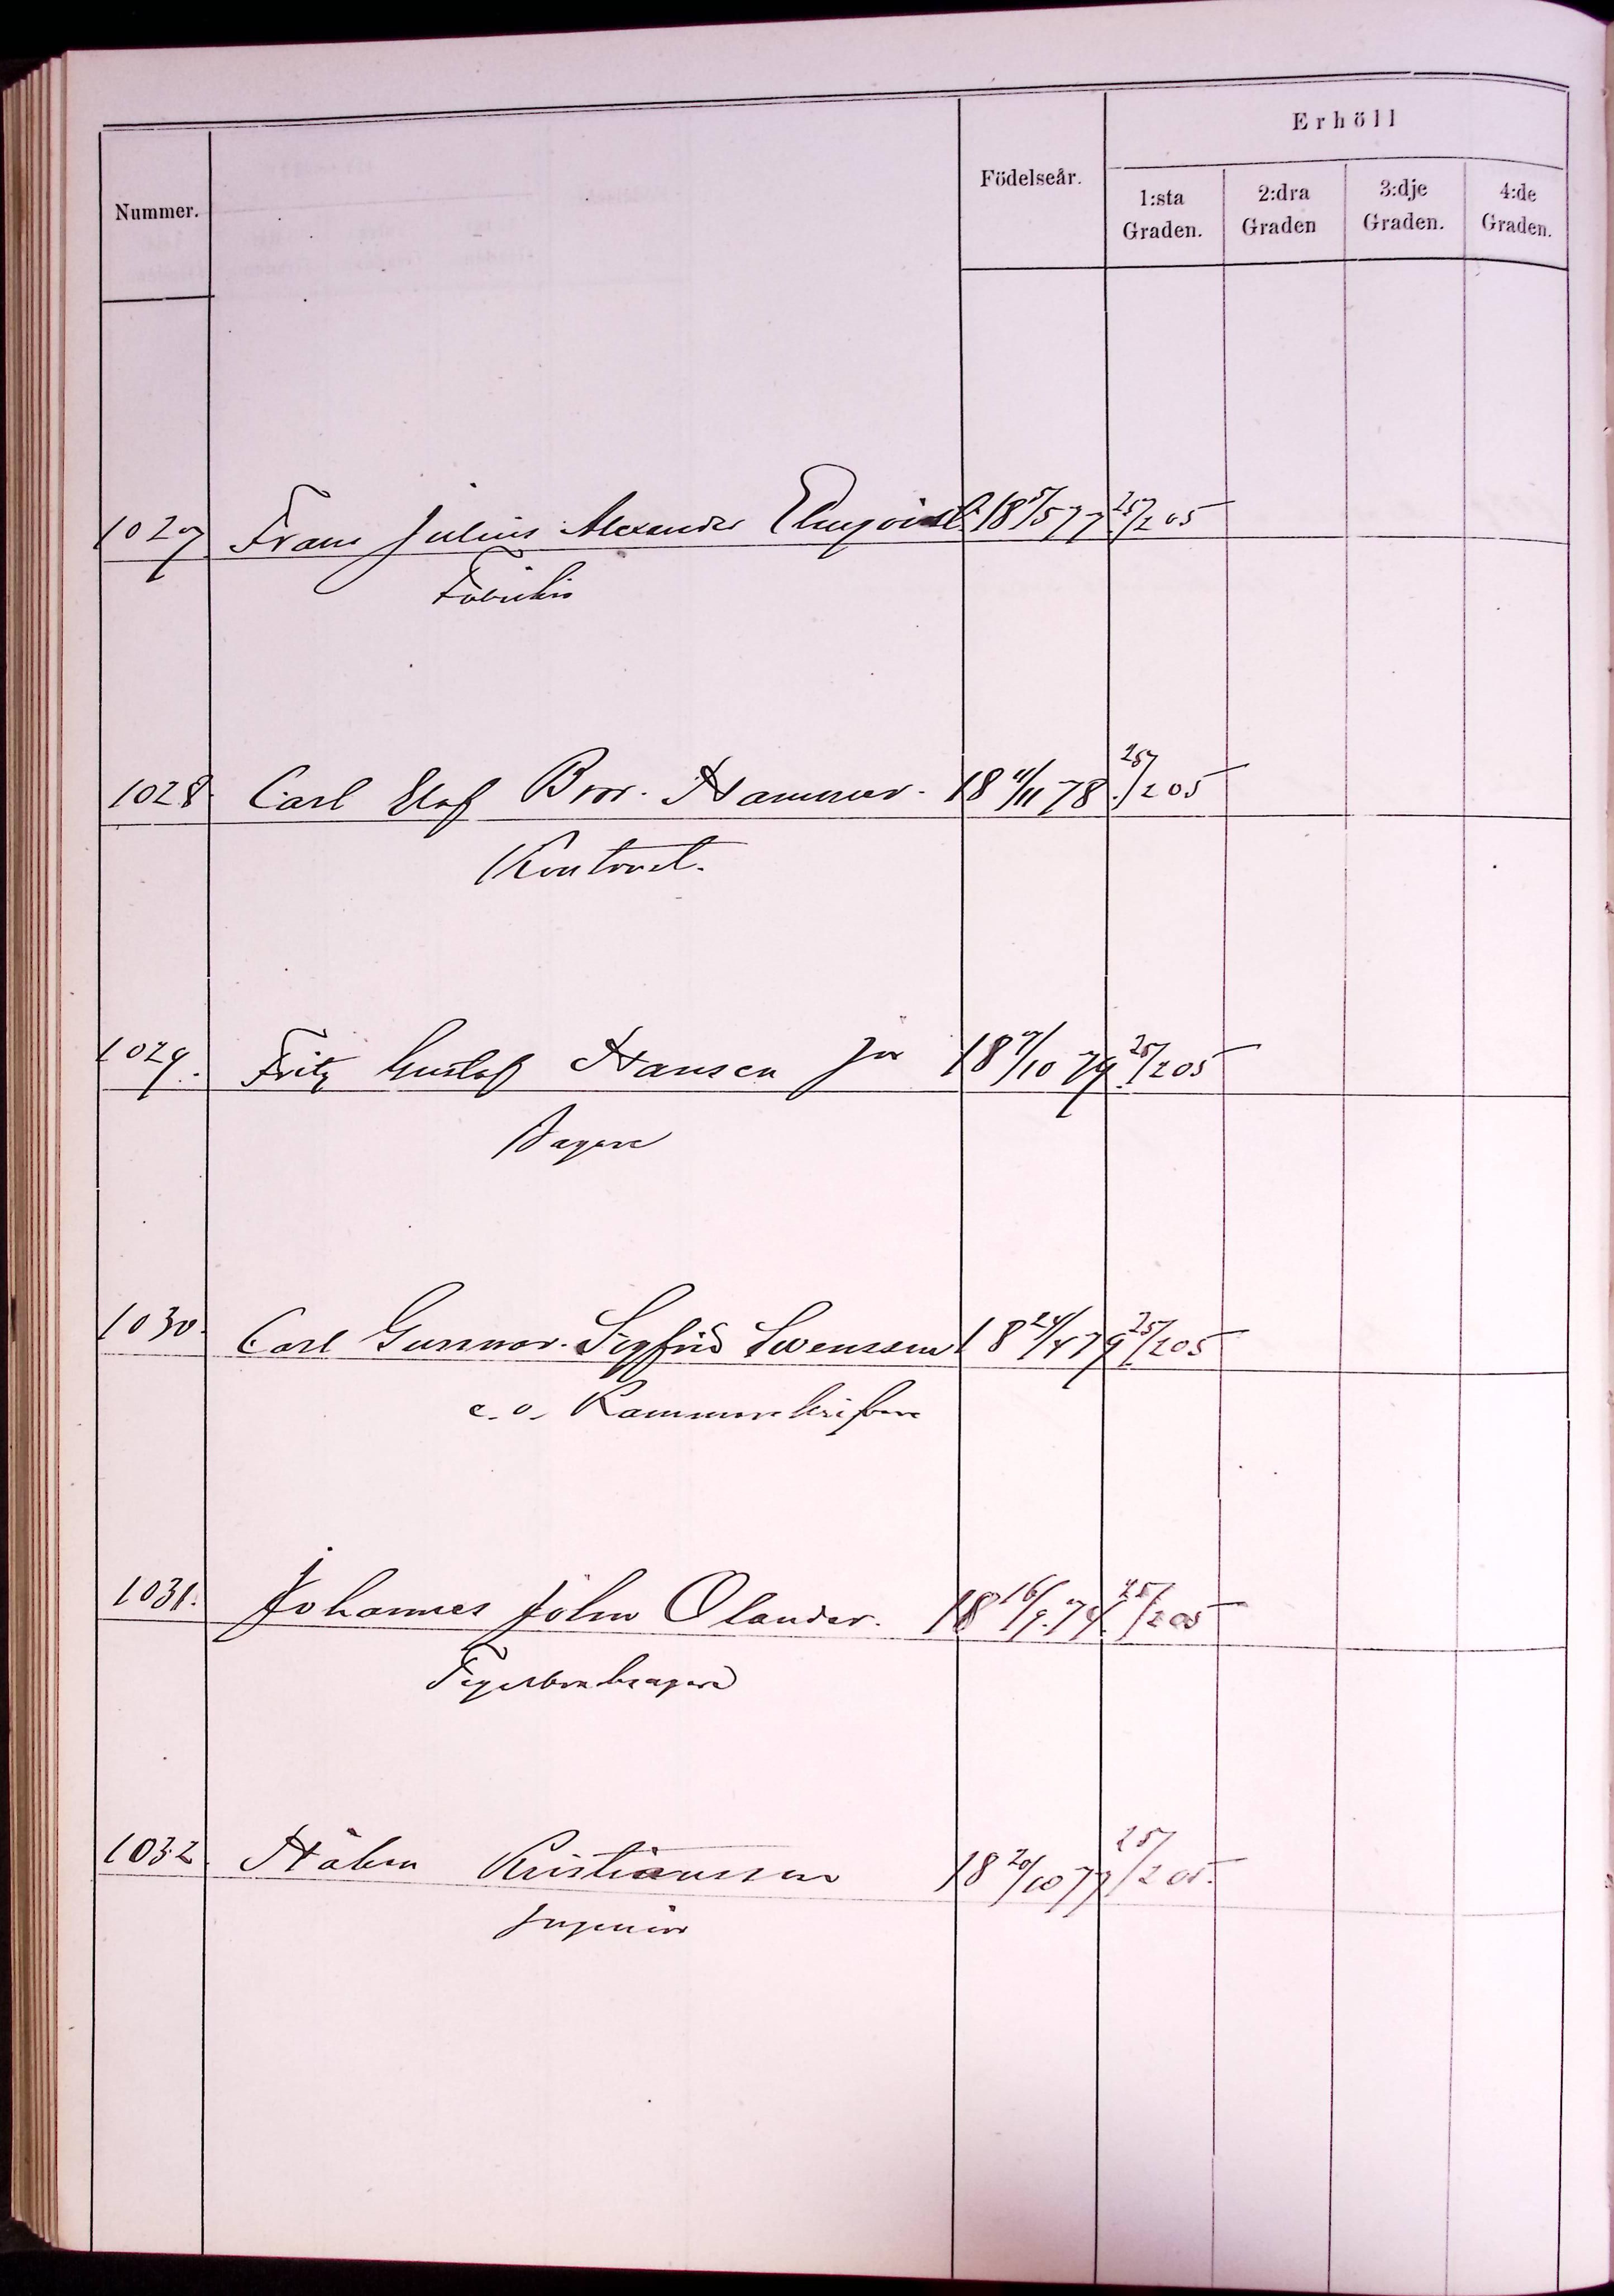 Erhöll
Nummer. Födelseår. 1:sta Graden. 2:dra Graden 3:dje Graden. 4:de Graden.
1027 Frans Julius Alexander Elmqvist 18 5/5 77 25/2 05
1028 Carl Elof Bror. Hammar. 18 11/11 78 25/2 05
Kontorist.
1029. Fritz Gustaf Hansen Jor 18 7/10 79 25/2 05
Bagare
1030. Carl Gunnar. Sigfrid Swensson 18 24/4 79 25/2 05
e. o. Kammarskrifvare
1031. Johannes John Olander. 18 16/9. 74. 25/2 05
1032. Håkan Kristiansson 18 20/10 77 25/2 05.
Ingeniör